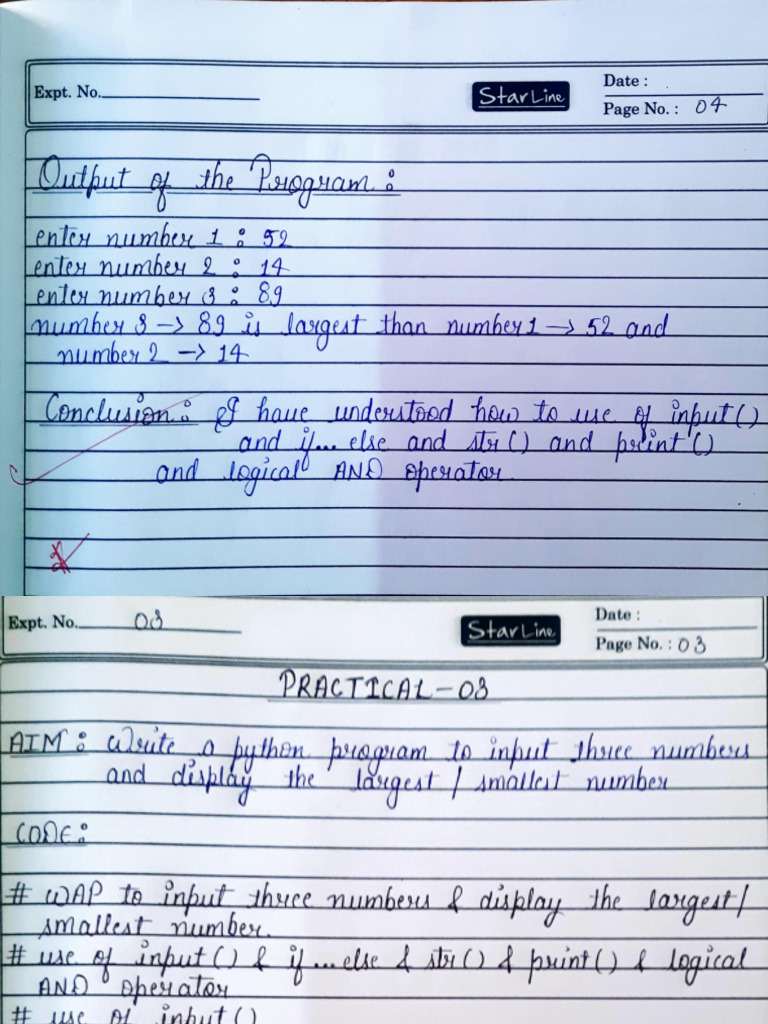 Expt. No.
StarLine
Date :
Page No. : 04
Output of the Program :
enter number 1 : 52
enter number 2 : 14
enter number 3 : 89
number 3 -> 89 is largest than number 1 -> 52 and
number 2 -> 14
Conclusion : I have understood how to use of input()
and if... else and str() and print()
and logical AND operator
Expt. No. 03
StarLine
Date :
Page No. : 03
PRACTICAL-03
AIM : Write a python program to input three numbers
and display the largest / smallest number
CODE :
# WAP to input three numbers & display the largest/
smallest number.
# use of input() & if...else & str() & print() & logical
AND operator
# use of input()